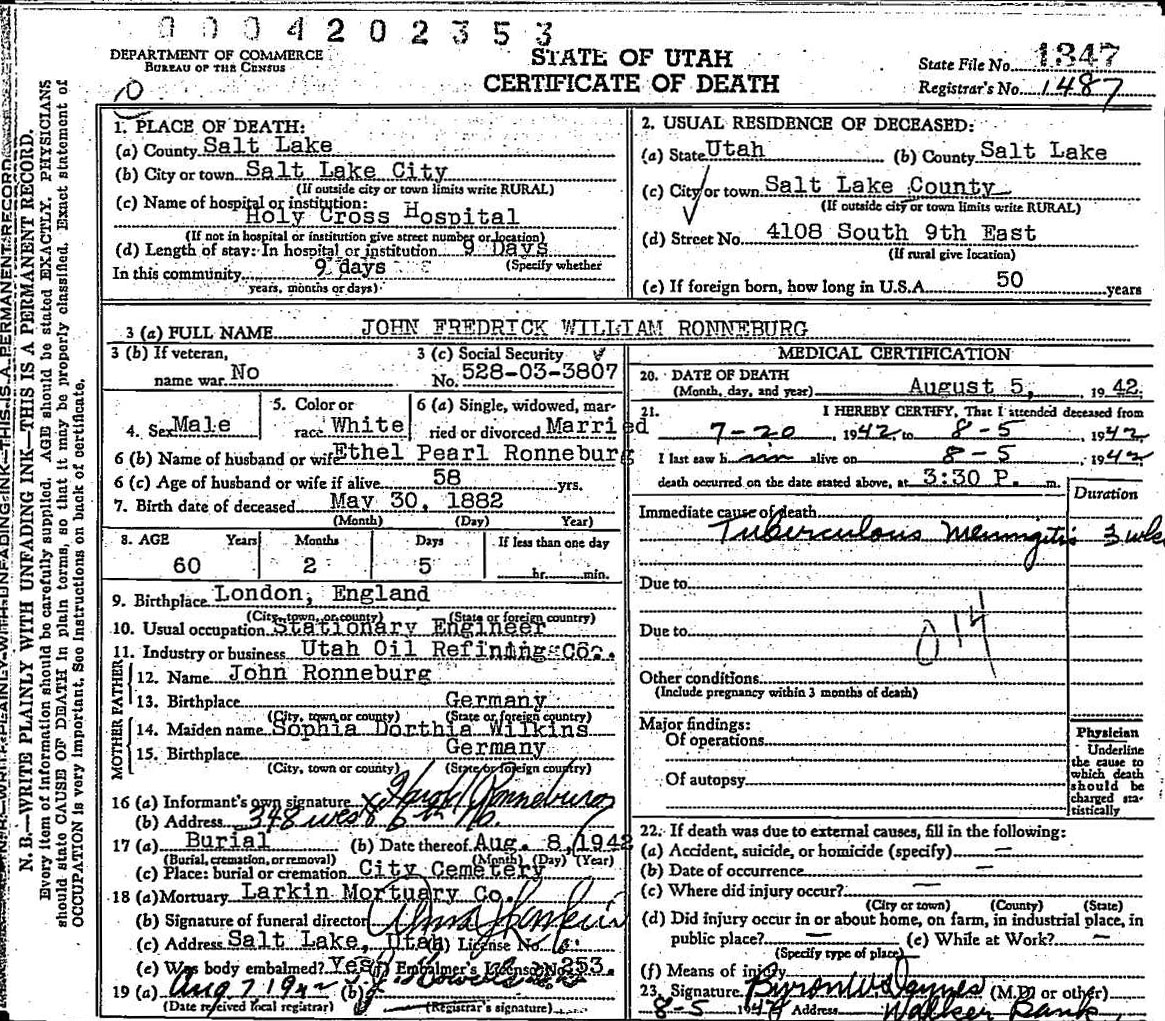 0004202353
DEPARTMENT OF COMMERCE
BUREAU OF THE CENSUS
STATE OF UTAH
CERTIFICATE OF DEATH
State File No. 1347
Registrar's No. 1487
N. B.—WRITE PLAINLY WITH UNFADING INK—THIS IS A PERMANENT RECORD.
Every item of information should be carefully supplied. AGE should be stated EXACTLY. PHYSICIANS
should state CAUSE OF DEATH in plain terms, so that it may be properly classified. Exact statement of
OCCUPATION is very important. See instructions on back of certificate.
1. PLACE OF DEATH:
(a) County Salt Lake
(b) City or town Salt Lake City
(If outside city or town limits write RURAL)
(c) Name of hospital or institution:
Holy Cross Hospital
(If not in hospital or institution give street number or location)
(d) Length of stay: In hospital or institution 9 Days
(Specify whether
In this community 9 days
years, months or days)
2. USUAL RESIDENCE OF DECEASED:
(a) State Utah (b) County Salt Lake
(c) City or town Salt Lake County
(If outside city or town limits write RURAL)
(d) Street No. 4108 South 9th East
(If rural give location)
(e) If foreign born, how long in U.S.A. 50 years
3 (a) FULL NAME JOHN FREDRICK WILLIAM RONNEBURG
3 (b) If veteran,
name war No
3 (c) Social Security
No. 528-03-3807
4. Sex Male
5. Color or
race White
6 (a) Single, widowed, mar-
ried or divorced Married
6 (b) Name of husband or wife Ethel Pearl Ronneburg
6 (c) Age of husband or wife if alive 58 yrs.
7. Birth date of deceased May 30, 1882
(Month) (Day) Year)
8. AGE Years Months Days If less than one day
60 2 5 hr. min.
9. Birthplace London, England
(City, town, or county) (State or foreign country)
10. Usual occupation Stationary Engineer
11. Industry or business Utah Oil Refining Co.
FATHER
12. Name John Ronneburg
13. Birthplace Germany
(City, town or county) (State or foreign country)
MOTHER
14. Maiden name Sophia Dorthia Wilkins
15. Birthplace Germany
(City, town or county) (State or foreign country)
16 (a) Informant's own signature x Harold Ronneburg
(b) Address 348 west 6th No.
17 (a) Burial (b) Date thereof Aug. 8, 1942
(Burial, cremation, or removal) (Month) (Day) (Year)
(c) Place: burial or cremation City Cemetery
18 (a) Mortuary Larkin Mortuary Co.
(b) Signature of funeral director
(c) Address Salt Lake, Utah (d) License No.
(e) Was body embalmed? Yes (f) Embalmer's License No. 253.
19 (a) Aug 7 1942 (b)
(Date received local registrar) (Registrar's signature)
MEDICAL CERTIFICATION
20. DATE OF DEATH
(Month, day, and year) August 5, 1942.
21. I HEREBY CERTIFY, That I attended deceased from
7-20, 1942 to 8-5 1942
I last saw him alive on 8-5, 1942
death occurred on the date stated above, at 3:30 P. m.
Duration
Immediate cause of death
Tuberculous Meningitis 3 wks
Due to
Due to
014
Other conditions
(Include pregnancy within 3 months of death)
Major findings:
Of operations
Of autopsy
Physician
Underline
the cause to
which death
should be
charged sta-
tistically
22. If death was due to external causes, fill in the following:
(a) Accident, suicide, or homicide (specify) —
(b) Date of occurrence —
(c) Where did injury occur? —
(City or town) (County) (State)
(d) Did injury occur in or about home, on farm, in industrial place, in
public place? — (e) While at Work? —
(Specify type of place)
(f) Means of injury
23. Signature Byron W Daynes (M.D. or other)
8-5 1942 Address Walker Bank